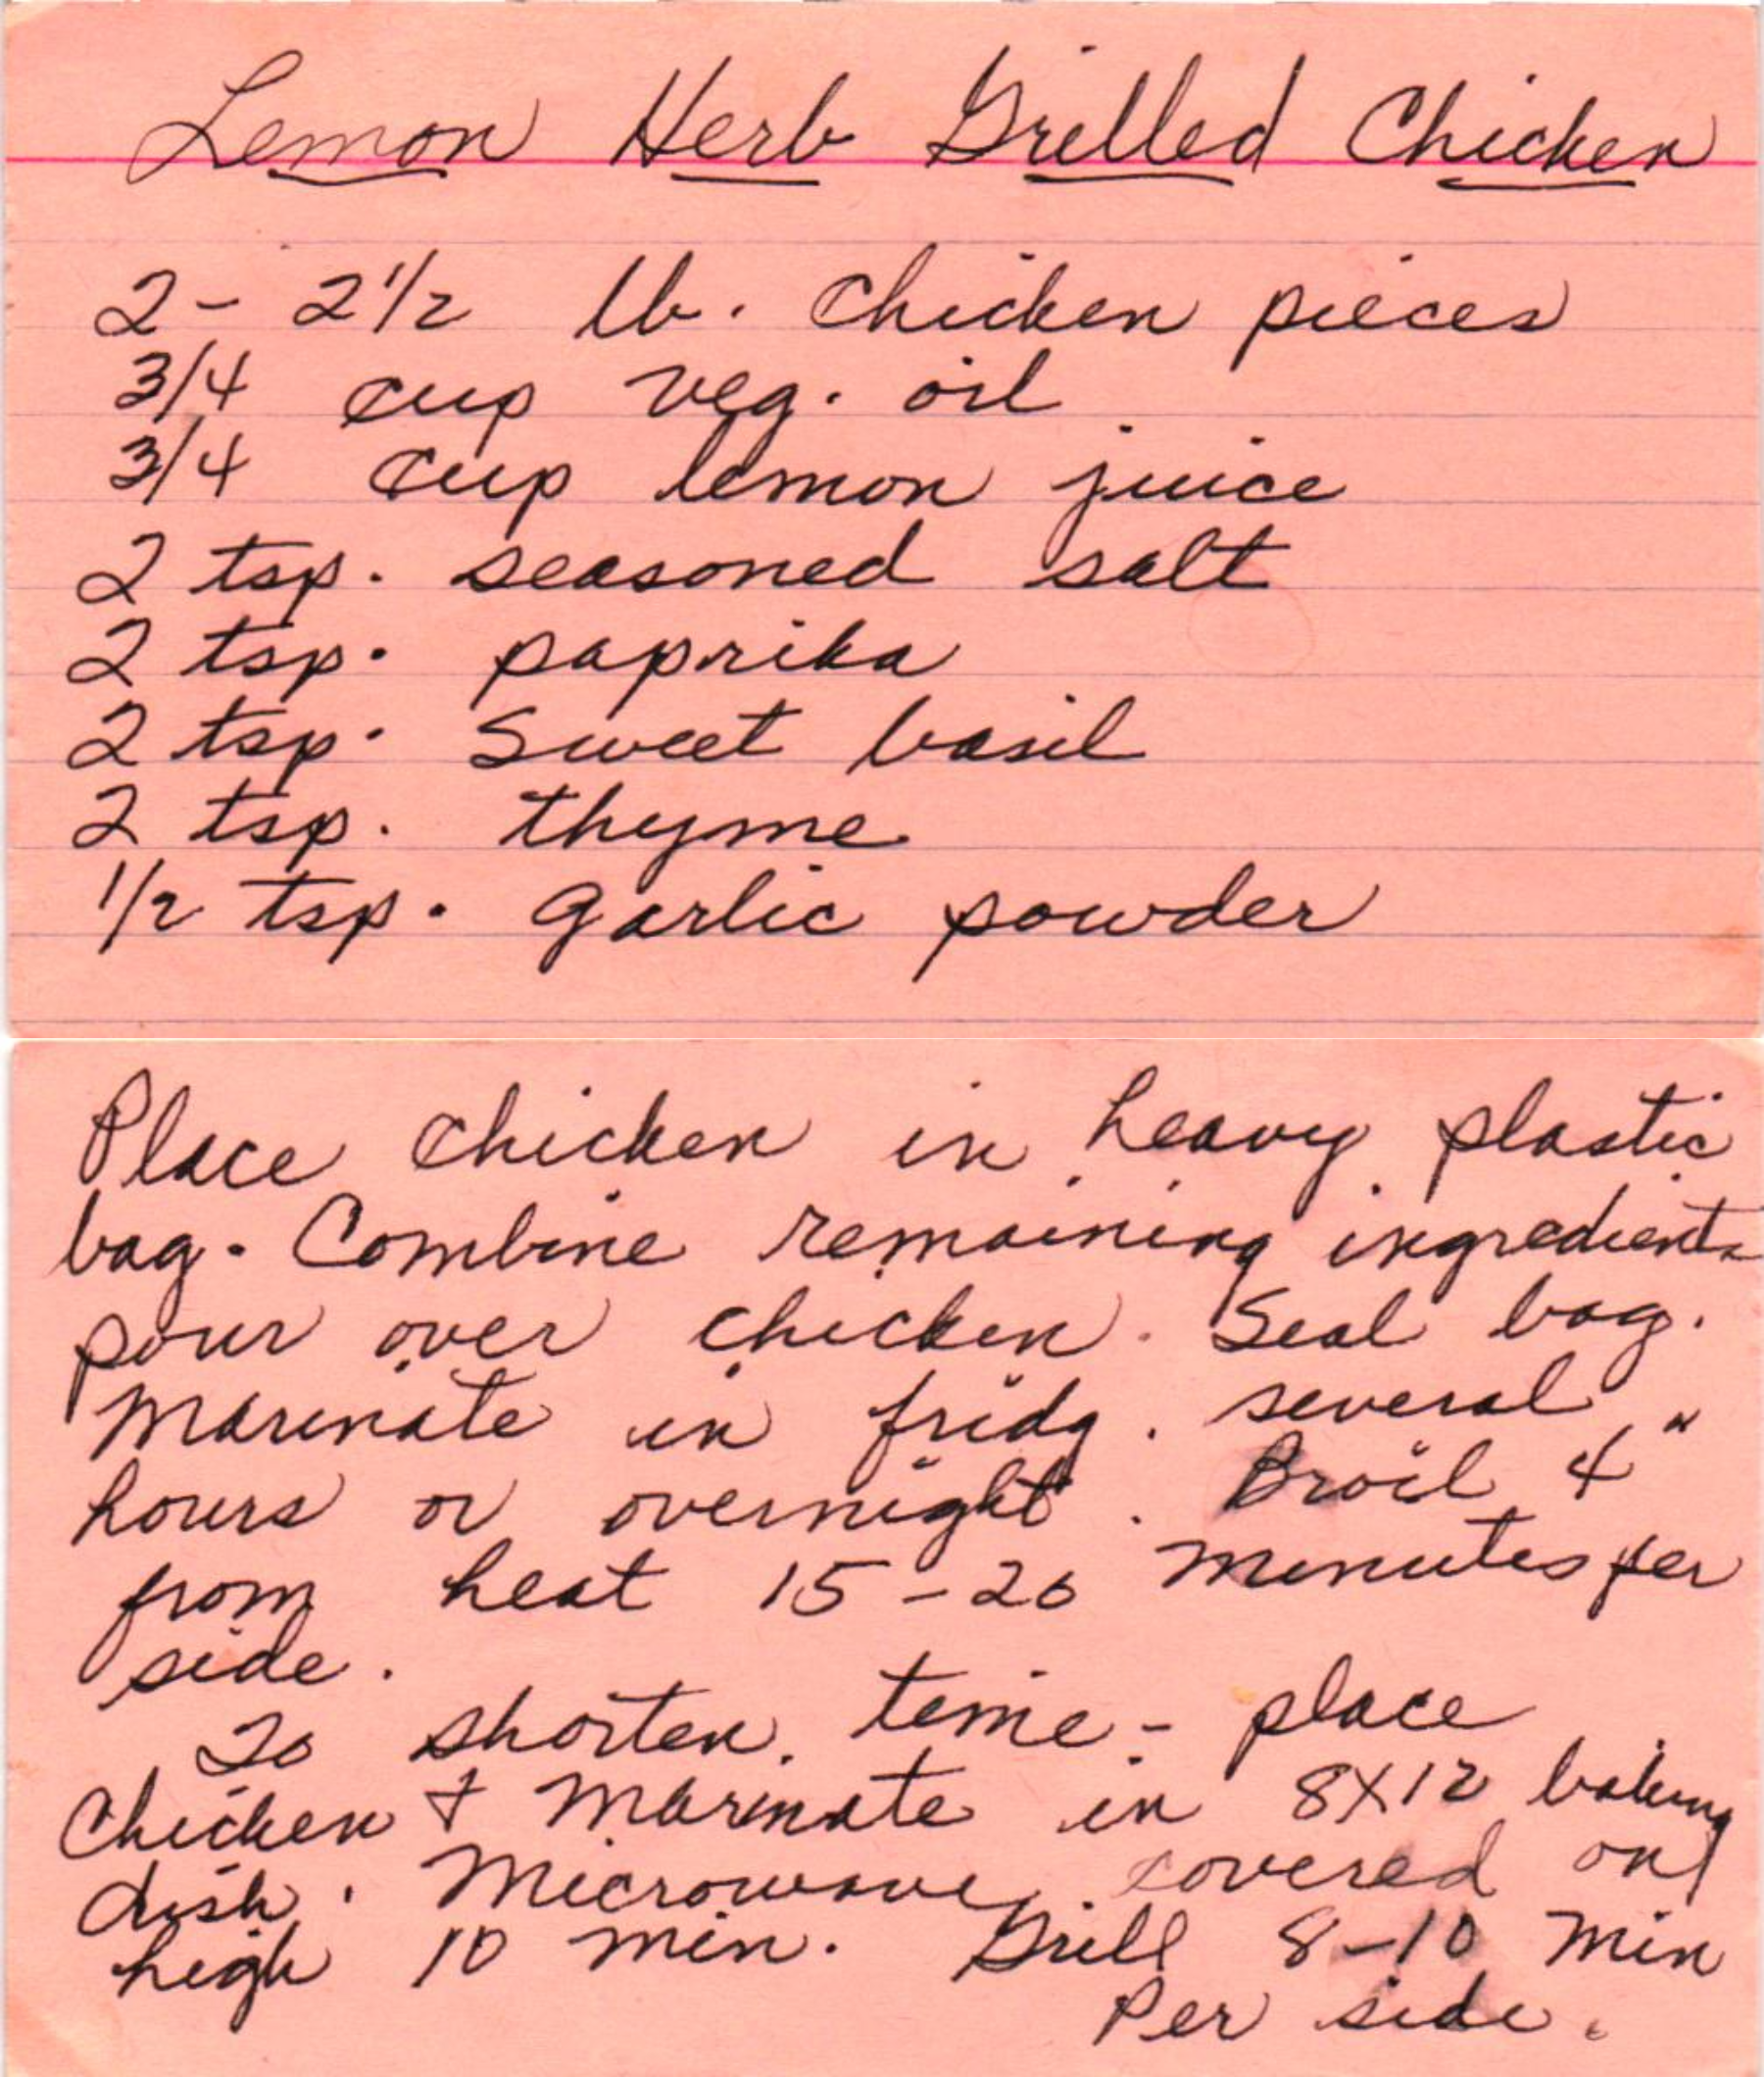 Lemon Herb Grilled Chicken
2 - 2 1/2 lb. chicken pieces
3/4 cup veg. oil
3/4 cup lemon juice
2 tsp. seasoned salt
2 tsp. paprika
2 tsp. sweet basil
2 tsp. thyme
1/2 tsp. garlic powder
Place chicken in heavy plastic
bag. Combine remaining ingredients
pour over chicken. Seal bag.
Marinate in fridg. several
hours or overnight. Broil 4"
from heat 15-20 minutes per
side.
To shorten time - place
Chicken + Marinate in 8X12 baking
dish. Microwave covered on
high 10 min. Grill 8-10 min
Per side.